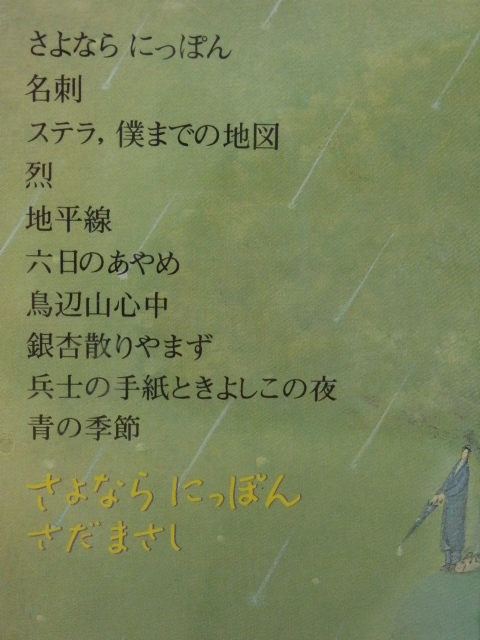 さよなら にっぽん
名刺
ステラ, 僕までの地図
烈
地平線
六日のあやめ
鳥辺山心中
銀杏散りやまず
兵士の手紙ときよしこの夜
青の季節
さよなら にっぽん
さだまさし